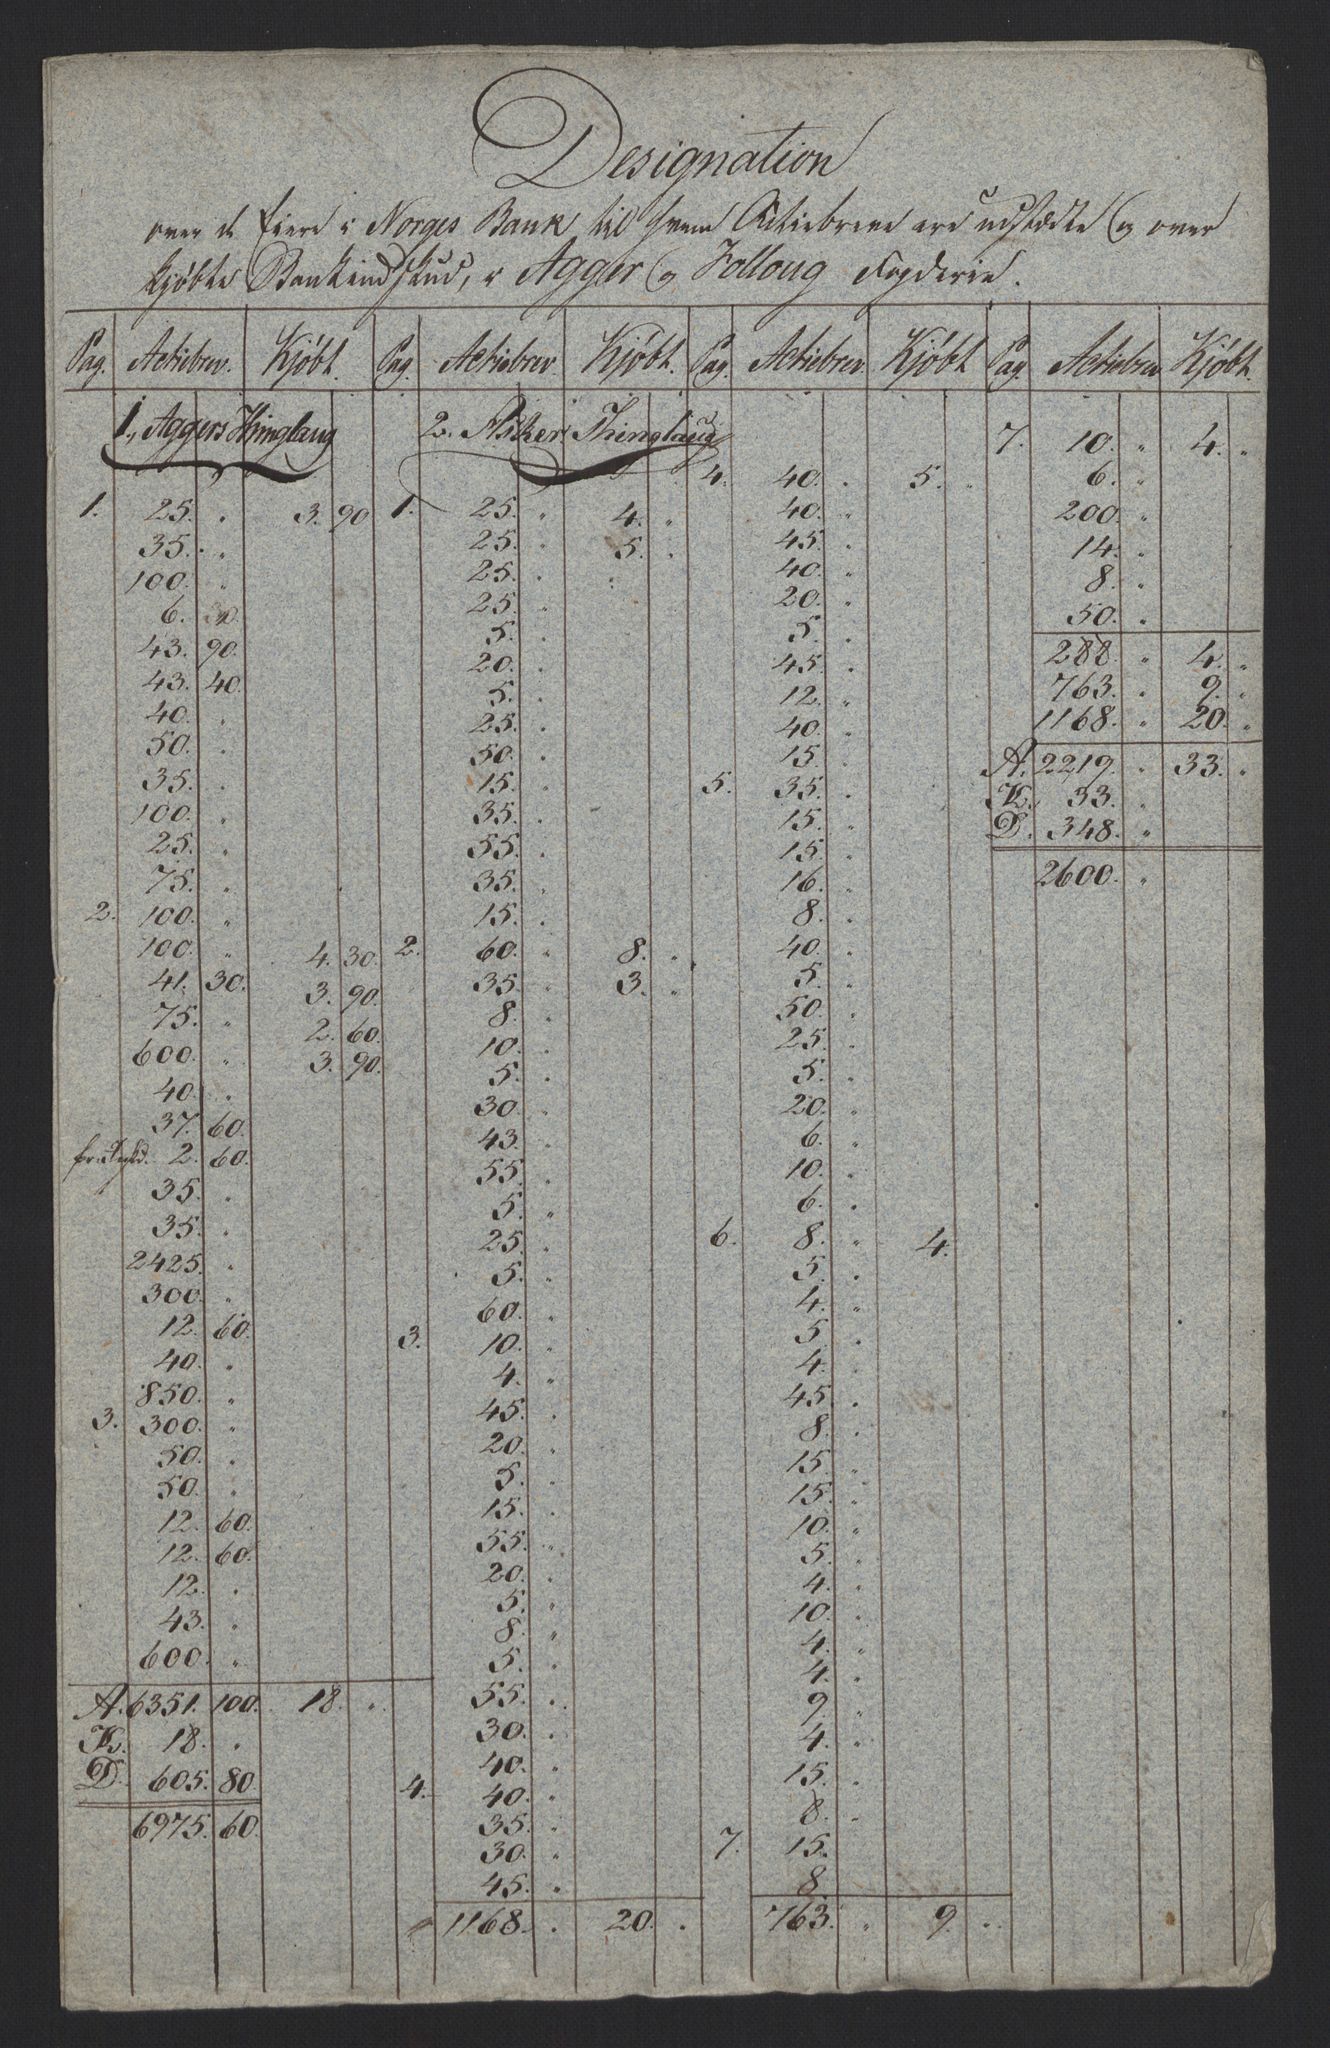 Designation
over de Eiere i Norges Bank, til hvem Actiebreve ere udstædte og over
kjøbte Bankindskud, i Agger og Folloug Fogderie.
Pag. Actiebrev. Kjøbt. Pag. Actiebrev Kjøbt. Pag. Actiebrev. Kjøbt Pag. Actiebrev Kjøbt.
1., Aggers Thinglaug
1. 25. " 3. 90
35. "
100. "
6.
43. 90.
43. 40.
40. "
50. "
35. "
100. "
25. "
75. "
2. 100. "
100. " 4. 30.
41. 30. 3. 90.
75. " 2. 60.
600. " 3. 90.
40. "
37. 60.
2. 60.
35. "
35. "
2425. "
300. "
12. 60.
40. "
850. "
3. 300. "
50. "
50. "
12. 60.
12. 60.
12. "
43. "
600. "
A. 6351. 100. 18. "
K. 18. "
D. 605. 80.
6975. 60.
2. Asker Thinglaug
1. 25. " 4. "
25. " 5. "
25. "
25. "
5. "
20. "
5. "
25. "
50. "
15. "
35. "
55. "
35. "
15. "
2. 60. " 8. "
35. " 3. "
8. "
10. "
5. "
30. "
43. "
55. "
5. "
25. "
5. "
60. "
3. 10. "
4. "
45. "
20. "
5. "
15. "
55. "
20. "
5. "
8. "
5. "
55. "
30. "
40. "
4. 40. "
35. "
30. "
45. "
1168. " 20. "
4. 40. " 5. "
40. "
45. "
40. "
20. "
5. "
45. "
12. "
40. "
15. "
5. 35. "
15. "
15. "
16. "
8. "
40. "
5. "
50. "
25. "
5. "
20. "
6. "
10. "
6. "
6. 8. " 4.
5. "
4. "
5. "
4. "
45. "
8. "
15. "
15. "
10. "
5. "
4. "
10. "
4. "
4. "
9. "
4. "
15. "
8. "
7. 15.
8.
763. " 9. "
7. 10. " 4. "
6. "
200. "
14. "
8. "
50. "
288. " 4. "
763. " 9. "
1168. " 20. "
A. 2219. " 33. "
K. 33. "
D. 348. "
2600. "